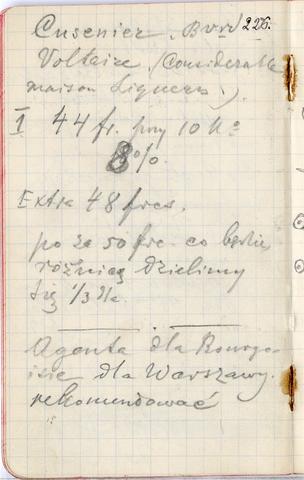 Cusenier. Bvrd 226.
Voltaire. (Considerable
maison Liqueurs).
I 44 fr. przy 10 Ko
8%.
Extra 48 frcs.
po za 50 frc. co będzie
różnicą dzielimy
się 1/3 dla
Agenta dla Bourgo-
isie dla Warszawy.
rekomendować